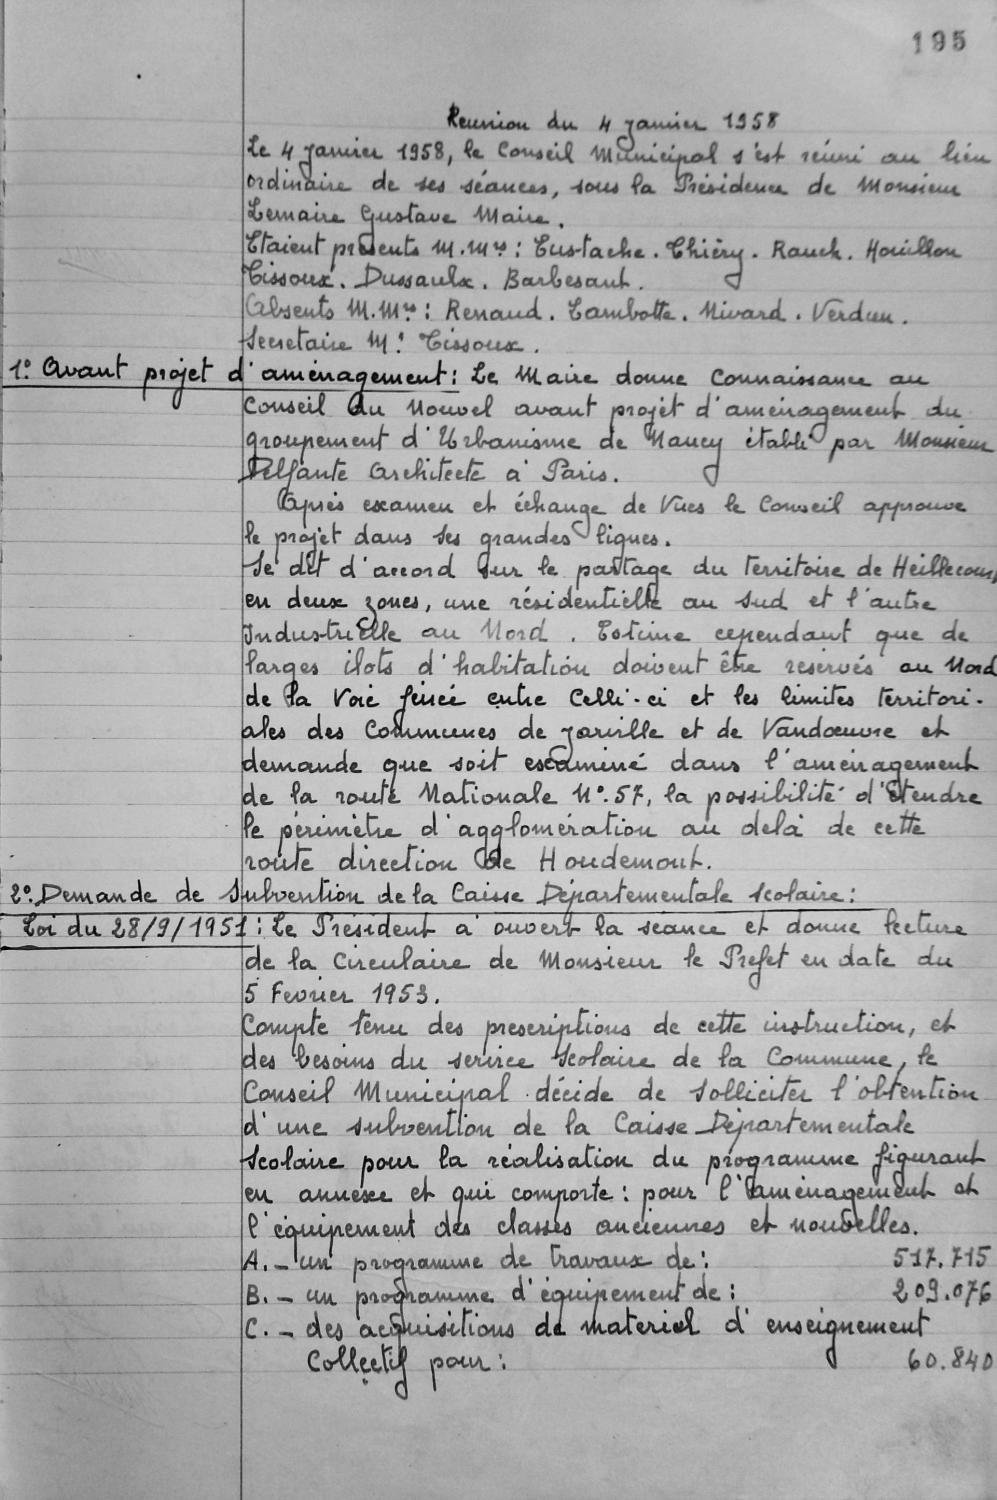 195
Reunion du 4 Janvier 1958
Le 4 Janvier 1958, le Conseil Municipal s'est réuni au lieu
ordinaire de ses séances, sous la Présidence de Monsieur
Lemaire Gustave Maire.
Etaient présents M.Mrs : Eustache. Thiéry. Rauch. Houillon
Tissoux. Dussaulx. Barbesant.
Absents M.Mrs : Renaud. Lambotte. Nivard. Verdun.
Secretaire Mr Tissoux.
1° Avant projet d'aménagement : Le Maire donne Connaissance au
Conseil du Nouvel avant projet d'aménagement du
groupement d'Urbanisme de Nancy établi par Monsieur
Delfante Architecte à Paris.
Après examen et échange de Vues le Conseil approuve
le projet dans ses grandes lignes.
Se dit d'accord sur le partage du territoire de Heillecourt
en deux zones, une résidentielle au Sud et l'autre
Industrielle au Nord. Estime cependant que de
larges ilots d'habitation doivent être reservés au Nord
de la Voie ferrée entre Celle-ci et les limites territori-
ales des Communes de Jarville et de Vandœuvre et
demande que soit examiné dans l'aménagement
de la route Nationale N°. 57, la possibilité d'Etendre
le périmètre d'agglomération au delà de cette
route direction de Houdemont.
2° Demande de Subvention de la Caisse Départementale Scolaire :
Loi du 28/9/1951 : Le Président a ouvert la séance et donne lecture
de la Circulaire de Monsieur le Préfet en date du
5 Fevrier 1953.
Compte tenu des prescriptions de cette instruction, et
des besoins du service Scolaire de la Commune, le
Conseil Municipal décide de Solliciter l'obtention
d'une subvention de la Caisse Départementale
Scolaire pour la réalisation du programme figurant
en annexe et qui comporte : pour l'aménagement et
l'équipement des classes anciennes et nouvelles.
A. - un programme de travaux de : 517.715
B. - un programme d'équipement de : 209.076
C. - des acquisitions de materiel d'enseignement
Collectif pour : 60.840